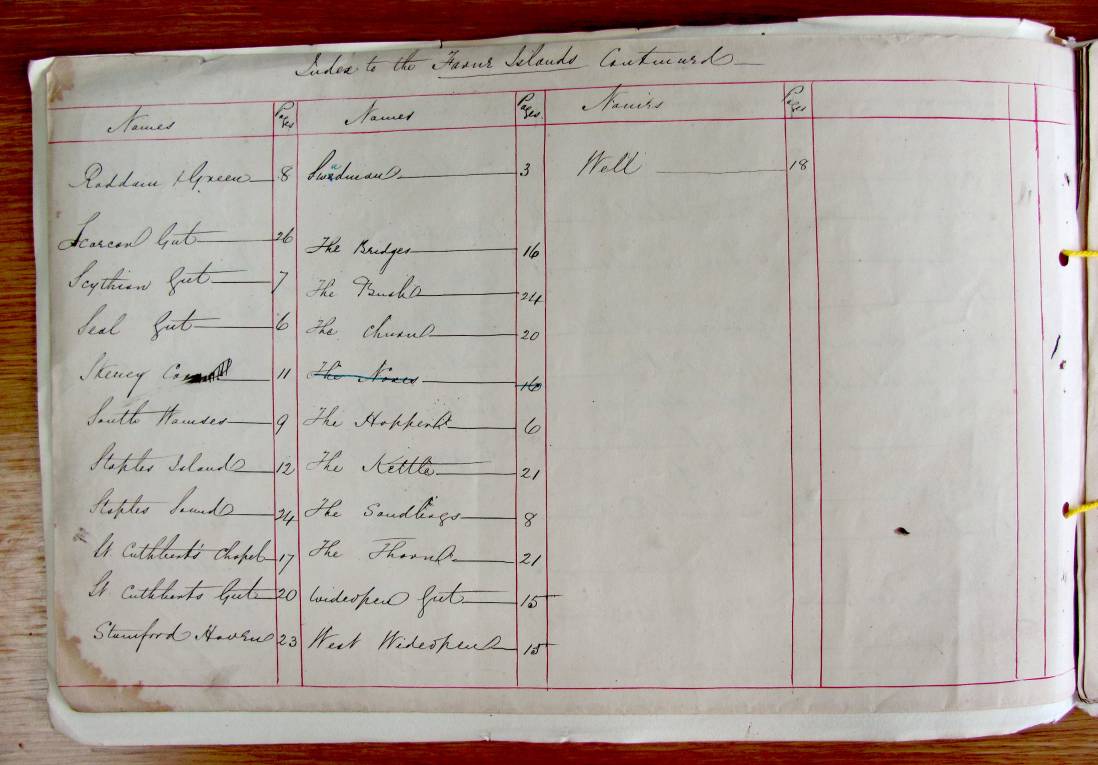 Index to the Farne Islands Continued
Names Pages
Roddam & Green 8
Scarcar Gut 26
Scythian Gut 7
Seal Gut 6
Skeney 11
South Wamses 9
Staples Island 12
Staples Sound 24
St Cuthbert's Chapel 17
St Cuthberts Gut 20
Stamford Haven 23
Names Pages
Swedman 3
The Bridges 16
The Bush 24
The Churn 20
The Noxes 16
The Hopper 6
The Kettle 21
The Sandlings 8
The 21
Wideopen Gut 15
West Wideopen 15
Names Pages
Well 18